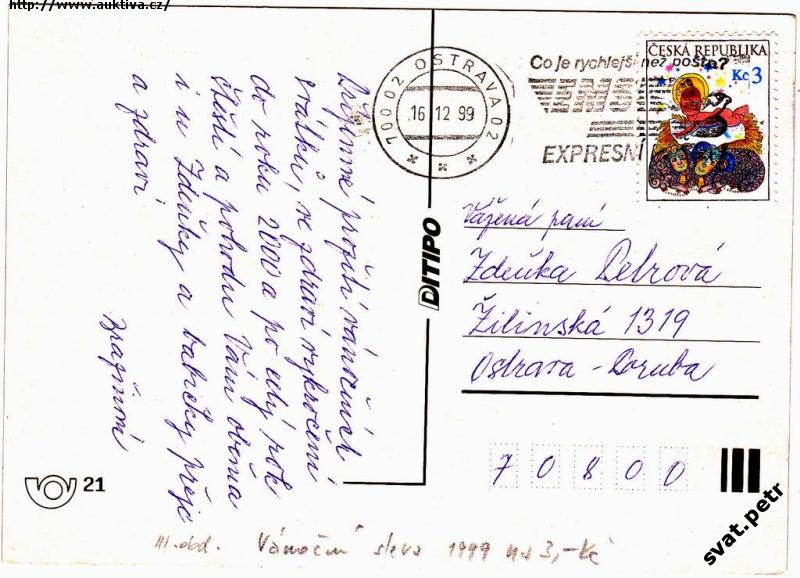 http://www.auktiva.cz/
Příjemné prožití vánočních
svátků, ve zdraví vykročení
do roku 2000 a po celý rok
štěstí a pohodu Vám oběma
i u Zdeňky a babičky přejí
a zdraví
70002 OSTRAVA 02
16 12 99
Co je rychlejší než pošta?
EMS
EXPRESNÍ
ČESKÁ REPUBLIKA
Kč 3
DITIPO
Vážená paní
Zdeňka Debrová
Žilinská 1319
Ostrava - Poruba
70800
21
III. obd. Vánoční sleva 1999 na 3,- Kč
svat.petr